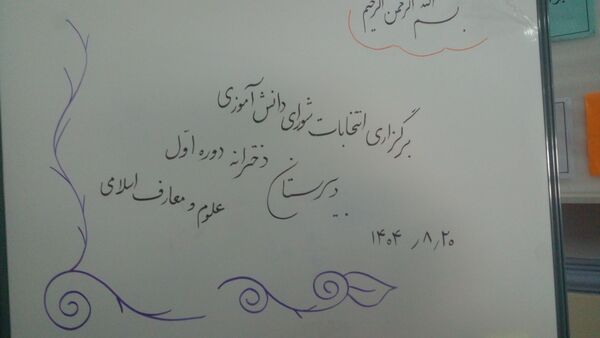 بسم الله الرحمن الرحیم
برگزاری انتخابات شورای دانش آموزی
دبیرستان دخترانه دوره اوّل
علوم و معارف اسلامی
۱۴۰۴٫۸٫۲۰